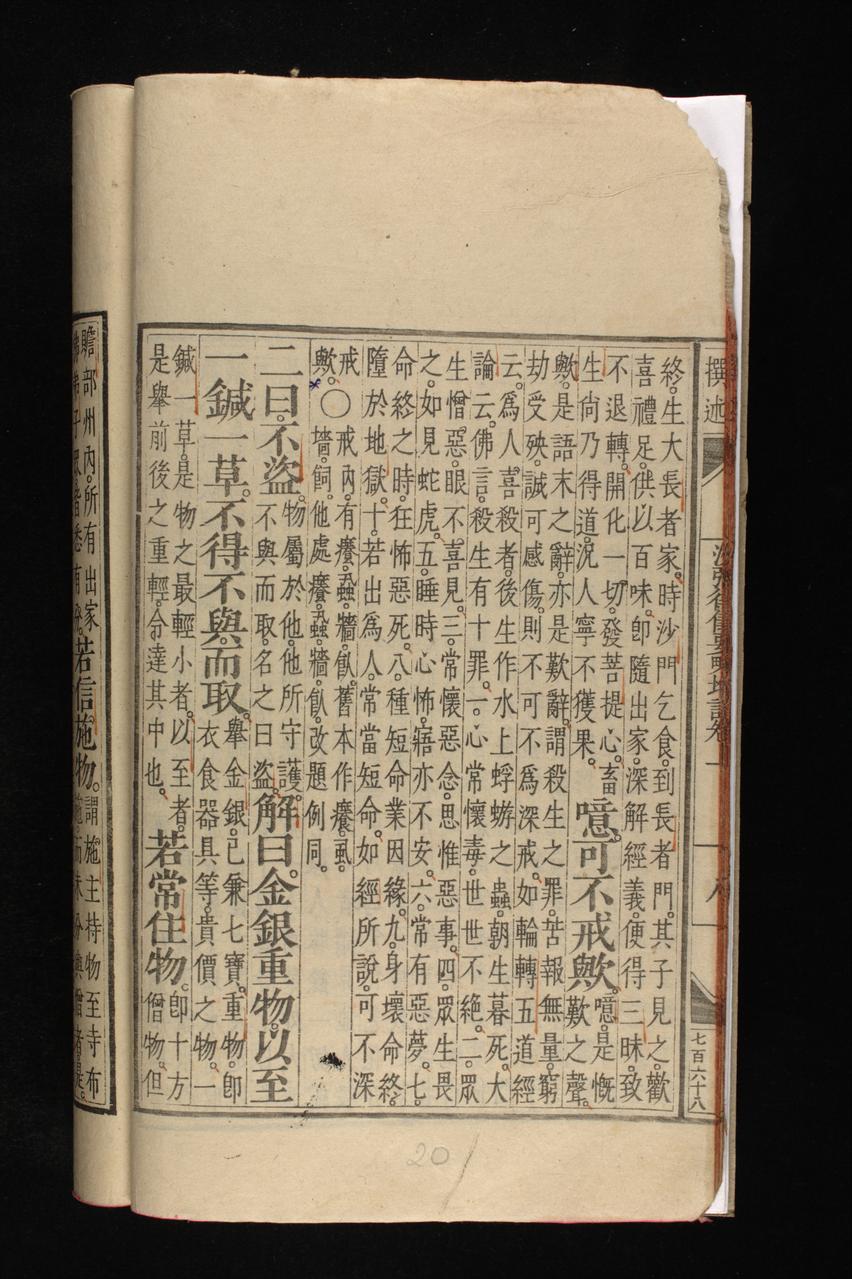 撰述
十八
七百六十八
終。生大長者家。時沙門乞食。到長者門。其子見之。歡
喜禮足。供以百味。卽隨出家。深解經義。便得三昧。致
不退轉。開化一切。發菩提心。畜
生尙乃得道。況人寧不獲果。
噫。可不戒歟。
噫。是慨
歎之聲。
歟。是語末之辭。亦是歎辭。謂殺生之罪。苦報無量。窮
劫受殃。誠可感傷。則不可不爲深戒。如輪轉五道經
云。爲人喜殺者。後生作水上蜉蝣之蟲。朝生暮死。大
論云。佛言。殺生有十罪。一。心常懷毒。世世不絕。二。眾
生憎惡。眼不喜見。三。常懷惡念。思惟惡事。四。眾生畏
之。如見蛇虎。五。睡時心怖。寤亦不安。六。常有惡夢。七。
命終之時。狂怖惡死。八。種短命業因緣。九。身壞命終。
墮於地獄。十。若出爲人。常當短命。如經所說。可不深
戒
歟。
〇
戒內。有癢。蝨。牆。飤。舊本作癢。虱。
墻。飼。他處癢。蝨。牆。飤。改題例同。
二曰。不盜。
物屬於他。他所守護。
不與而取。名之曰盜。
解曰。金銀重物。以至
一鍼一草。不得不與而取。
舉金銀。已兼七寶。重物。卽
衣食器具等。貴價之物。一
鍼一草。是物之最輕小者。以至者。
是舉前後之重輕。令達其中也。
若常住物。
卽十方
僧物。但
贍部州內。所有出家
若信施物。
謂施主持物至寺布
20